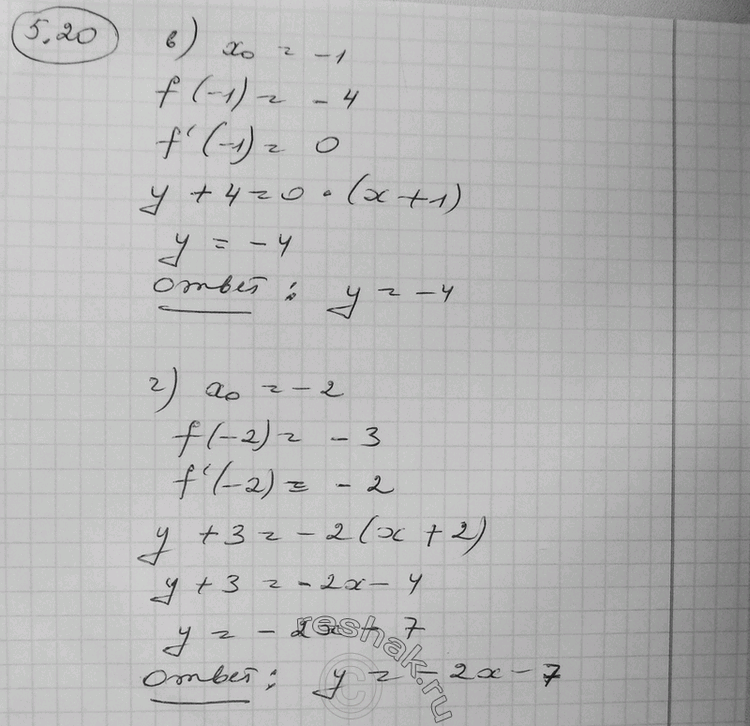 5.20
в) x₀ = -1
f(-1) = -4
f'(-1) = 0
y + 4 = 0 · (x + 1)
y = -4
Ответ: y = -4
г) x₀ = -2
f(-2) = -3
f'(-2) = -2
y + 3 = -2(x + 2)
y + 3 = -2x - 4
y = -2x - 7
Ответ: y = -2x - 7
reshak.ru
©